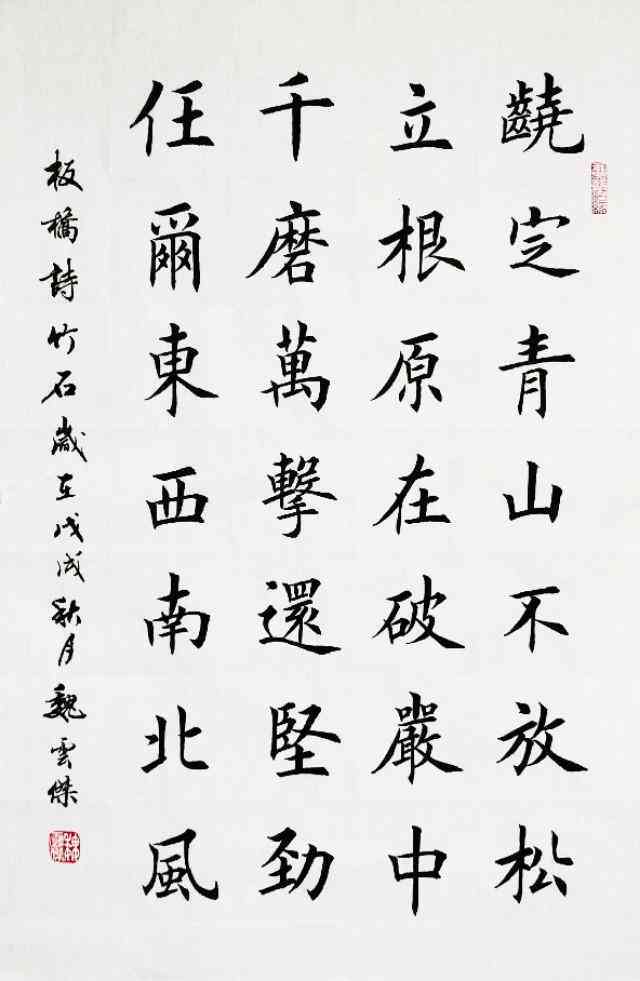 定青山不放松
立根原在破嚴中
千磨萬擊還堅勁
任爾東西南北風
板橋詩竹石歲在戊戌秋月魏雲傑